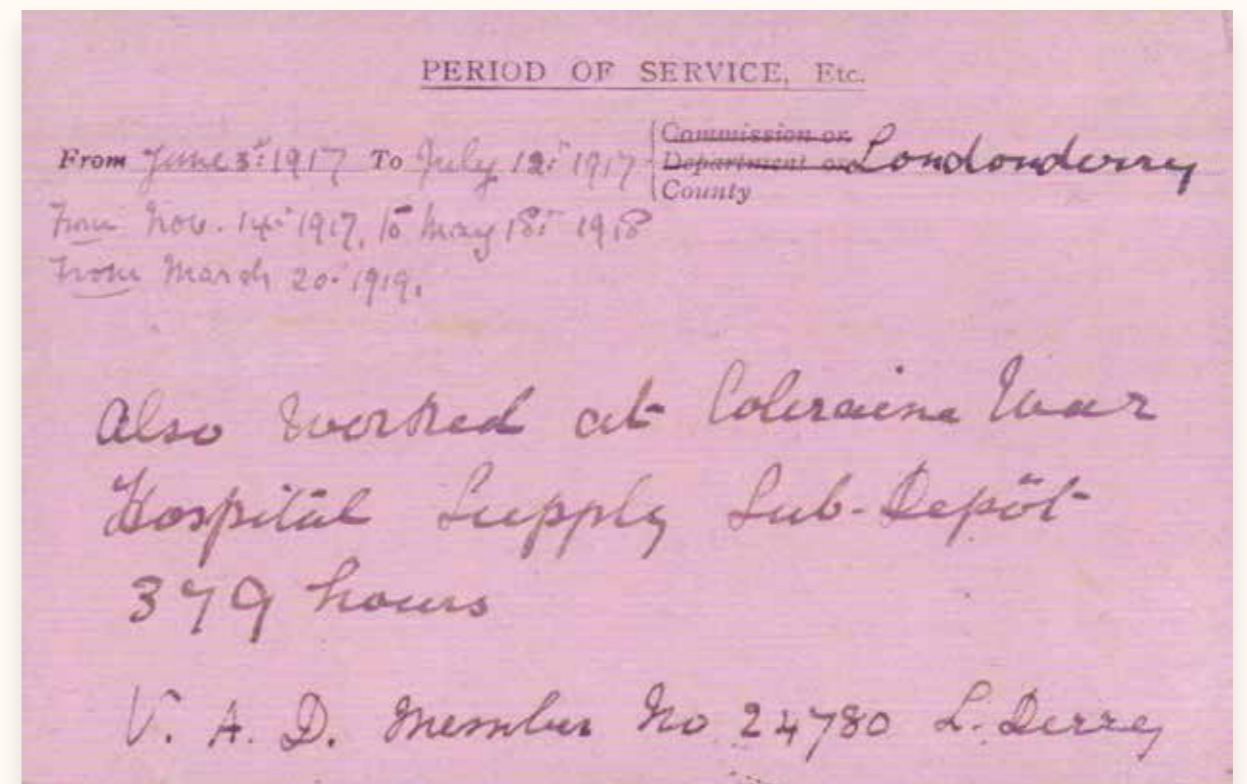 PERIOD OF SERVICE, Etc.
From June 3rd 1917 To July 12th 1917 Commission or Londonderry
Department or
County
From Nov. 14th 1917, to May 18th 1918
From March 20th 1919.
Also worked at Coleraine War
Hospital Supply Sub-Depôt
379 hours
V. A. D. Member No 24780 L. Derry